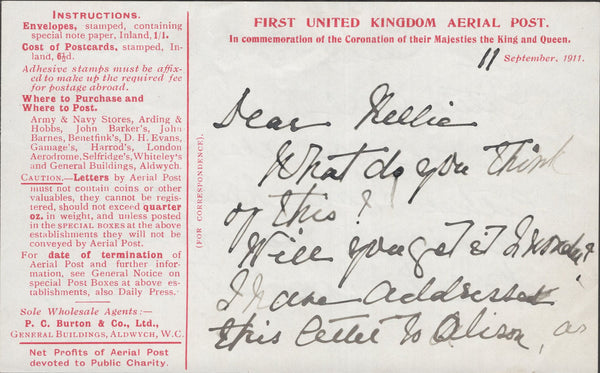 INSTRUCTIONS.
Envelopes, stamped, containing
special note paper, Inland, 1/1.
Cost of Postcards, stamped, In-
land, 6½d.
Adhesive stamps must be affix-
ed to make up the required fee
for postage abroad.
Where to Purchase and
Where to Post.
Army & Navy Stores, Arding &
Hobbs, John Barker's, John
Barnes, Benetfink's, D. H. Evans,
Gamage's, Harrod's, London
Aerodrome, Selfridge's, Whiteley's
and General Buildings, Aldwych.
CAUTION.—Letters by Aerial Post
must not contain coins or other
valuables, they cannot be regis-
tered, should not exceed quarter
oz. in weight, and unless posted
in the SPECIAL BOXES at the above
establishments they will not be
conveyed by Aerial Post.
For date of termination of
Aerial Post and further infor-
mation, see General Notice on
special Post Boxes at above es-
tablishments, also Daily Press.
Sole Wholesale Agents:—
P. C. Burton & Co., Ltd.,
GENERAL BUILDINGS, ALDWYCH, W.C.
Net Profits of Aerial Post
devoted to Public Charity.
(FOR CORRESPONDENCE).
FIRST UNITED KINGDOM AERIAL POST.
In commemoration of the Coronation of their Majesties the King and Queen.
11 September, 1911.
Dear Nellie
What do you think
of this?
Will you get it I wonder?
I have addressed
this letter to Alison, as